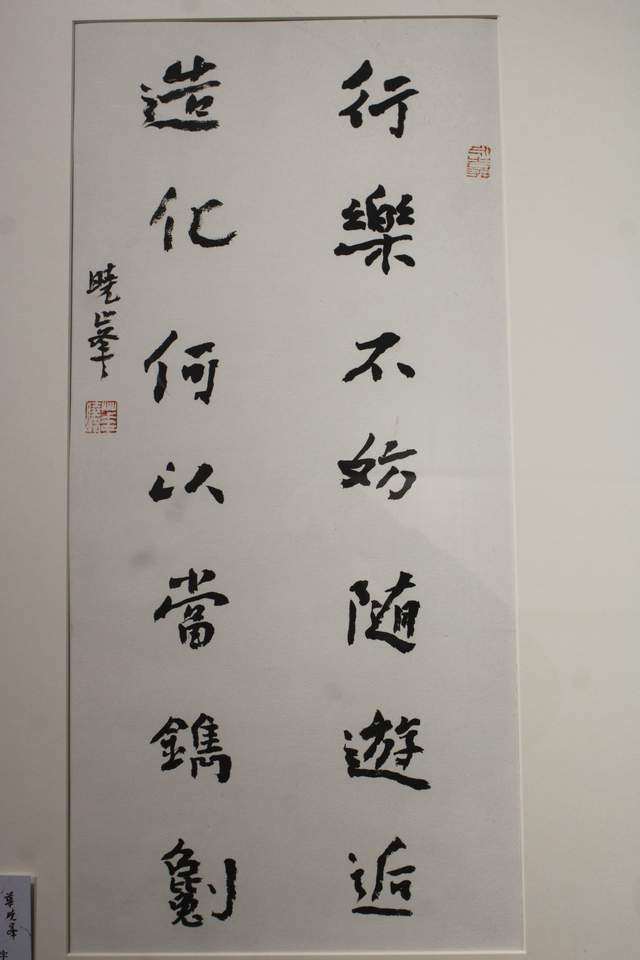 行樂不妨隨遊逅
造化何以當鐫劖
曉峯